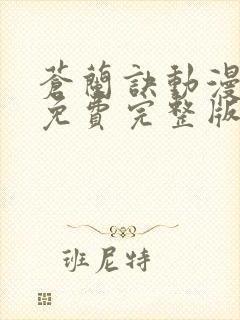 蒼蘭訣動漫
免費完整版
班尼特